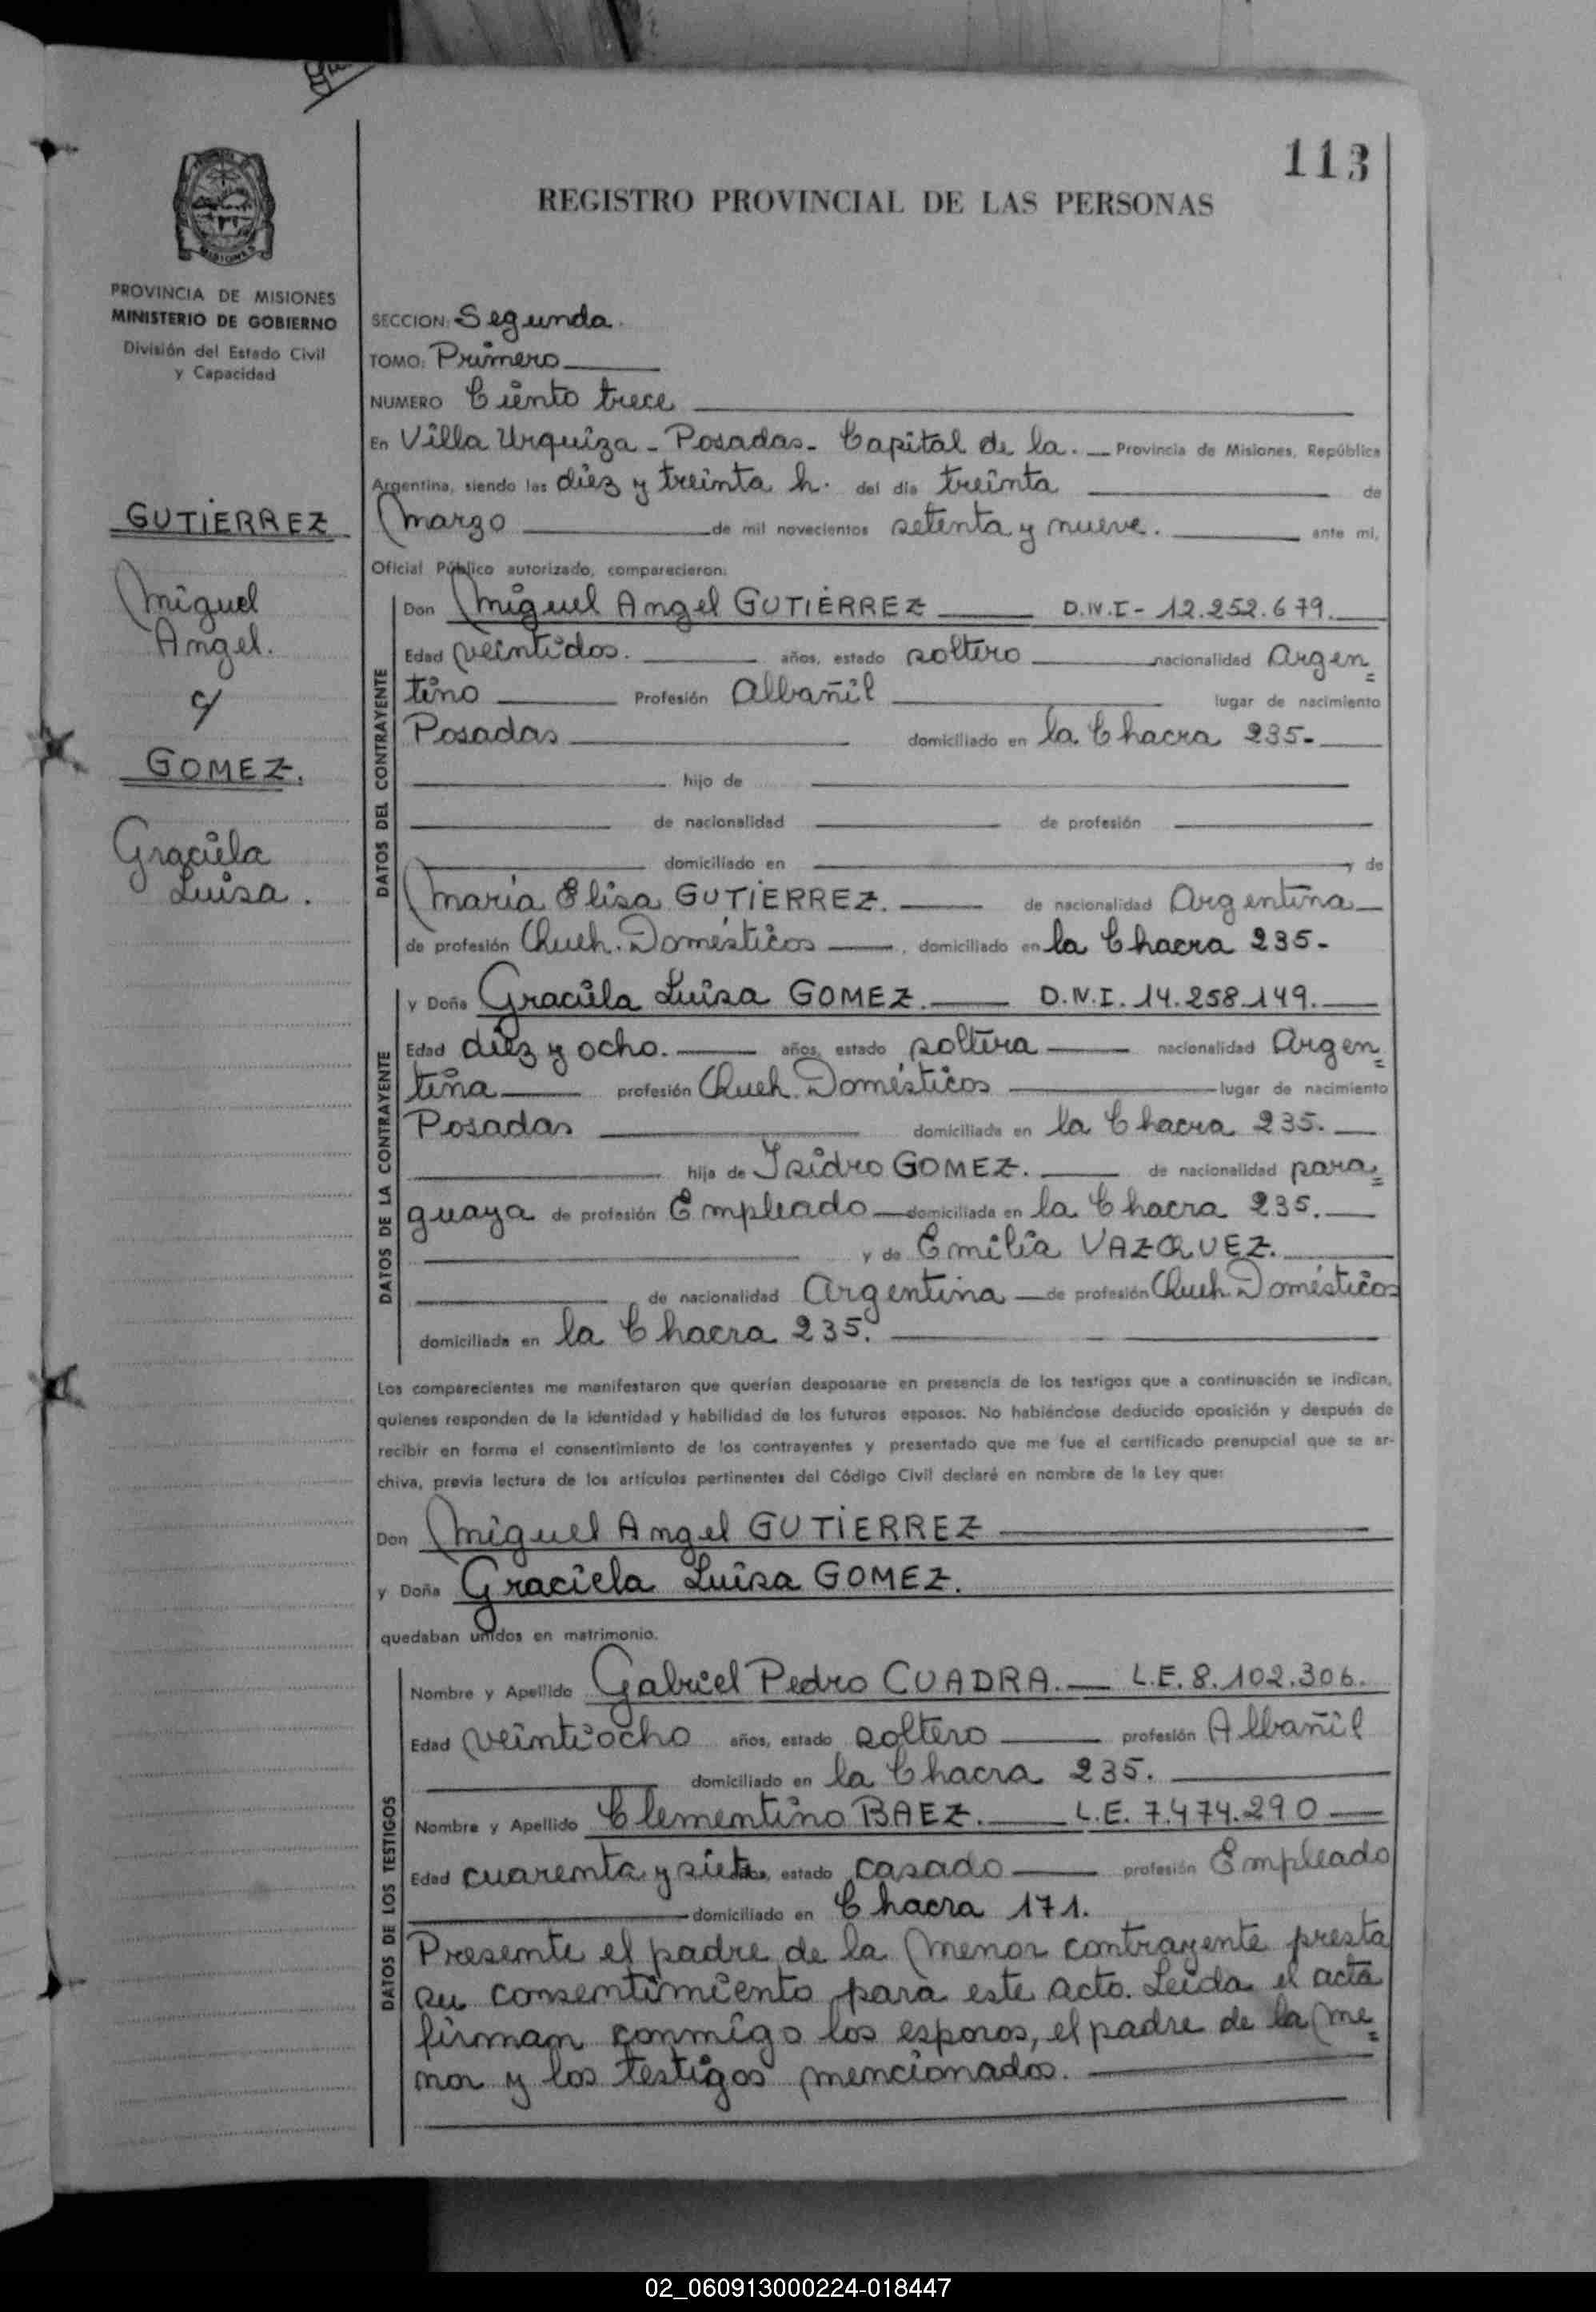 113
REGISTRO PROVINCIAL DE LAS PERSONAS
MISIONES
PROVINCIA DE MISIONES
MINISTERIO DE GOBIERNO
División del Estado Civil
y Capacidad
GUTIERREZ
Miguel
Angel.
c/
GOMEZ.
Graciela
Luisa.
SECCION: Segunda.
TOMO: Primero
NUMERO Ciento trece
En Villa Urquiza - Posadas - Capital de la. Provincia de Misiones, República
Argentina, siendo las diez y treinta h. del día treinta de
Marzo de mil novecientos setenta y nueve. ante mi,
Oficial Público autorizado, comparecieron:
DATOS DEL CONTRAYENTE
Don Miguel Angel GUTIÉRREZ D.N.I - 12.252.679.
Edad veintidos. años, estado soltero nacionalidad Argen=
tino Profesión Albañil lugar de nacimiento
Posadas domiciliado en la Chacra 235-
hijo de
de nacionalidad de profesión
domiciliado en y de
María Elisa GUTIERREZ. de nacionalidad Argentina
de profesión Queh. Domésticos, domiciliado en la Chacra 235-
DATOS DE LA CONTRAYENTE
y Doña Graciela Luisa GOMEZ. D.N.I. 14.258.149.
Edad diez y ocho. años, estado soltera nacionalidad Argen=
tina profesión Queh. Domésticos lugar de nacimiento
Posadas domiciliada en la Chacra 235.
hija de Isidro GOMEZ. de nacionalidad para=
guaya de profesión Empleado domiciliada en la Chacra 235.
y de Emilia VAZQUEZ.
de nacionalidad Argentina de profesión Queh. Domésticos
domiciliada en la Chacra 235.
Los comparecientes me manifestaron que querían desposarse en presencia de los testigos que a continuación se indican,
quienes responden de la identidad y habilidad de los futuros esposos. No habiéndose deducido oposición y después de
recibir en forma el consentimiento de los contrayentes y presentado que me fue el certificado prenupcial que se ar-
chiva, previa lectura de los artículos pertinentes del Código Civil declaré en nombre de la Ley que:
Don Miguel Angel GUTIERREZ
y Doña Graciela Luisa GOMEZ.
quedaban unidos en matrimonio.
DATOS DE LOS TESTIGOS
Nombre y Apellido Gabriel Pedro CUADRA. L.E. 8.102.306.
Edad veintiocho años, estado soltero profesión Albañil
domiciliado en la Chacra 235.
Nombre y Apellido Clementino BAEZ. L.E. 7.474.290
Edad cuarenta y siete años, estado casado profesión Empleado
domiciliado en Chacra 171.
Presente el padre de la menor contrayente presta
su consentimiento para este acto. Leída el acta
firman conmigo los esposos, el padre de la me=
nor y los testigos mencionados.
02_060913000224-018447